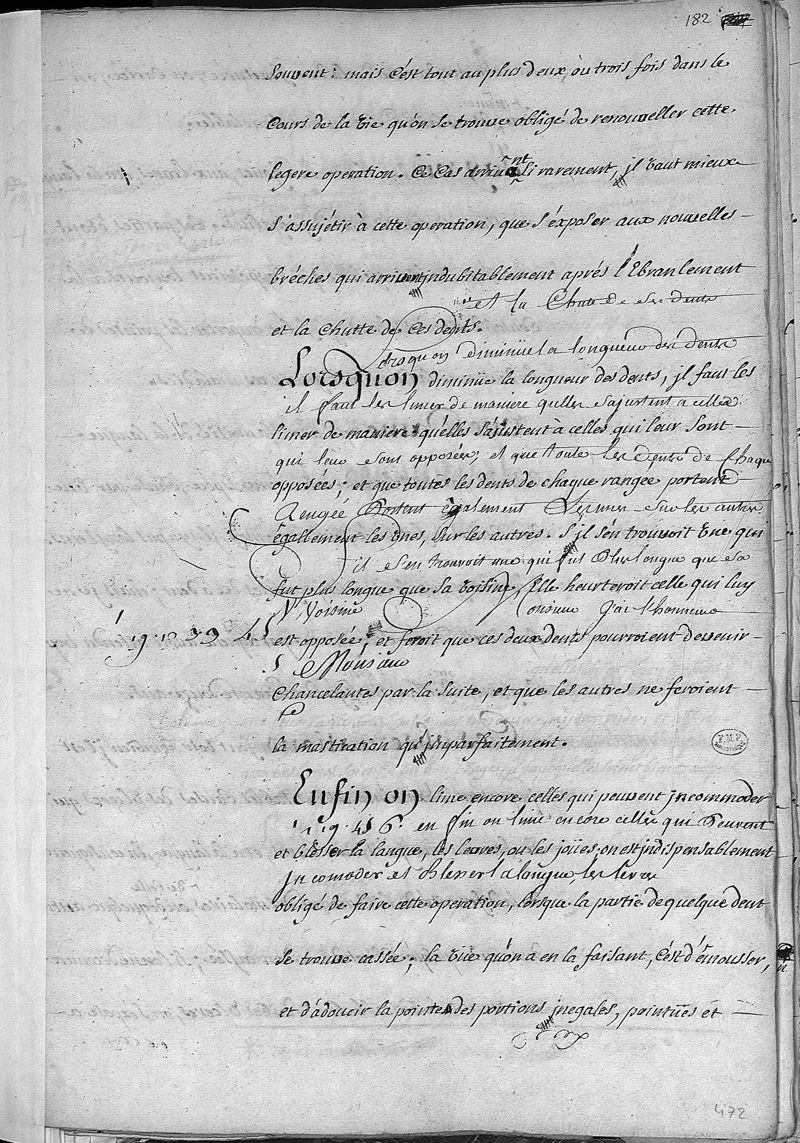 182
souvent: mais c'est tout au plus deux, ou trois fois dans le
cours de la vie qu'on se trouve obligé de renouveller cette
legere operation. Ce cas arrivant si rarement, jl vaut mieux
s'assujétir à cette operation, que s'éxposer aux nouvelles
bréches qui arrivent jndubitablement aprés l'Ebranlement
et la Chute de ses dents
et la Chutte de ces dents.
Lorsquon diminüe la longueur des dents
Lorsquon diminüe la longueur des dents, jl faut les
il faut les limer de maniere quelles sajustent a celles
limer de maniere quélles s'ajustent a celles qui leur sont
qui leur sont opposées; et que toute les dents de chaque
opposées; et que toutes les dents de chaque rangée portent
Rengée Portent également les unes sur les autres
égallement les vnes, sur les autres. S'jl s'en trouvoit vne qui
il s'en trouvoit une qui fut Plus longue que sa
fut plus longue que sa voisine, Elle heurteroit celle qui luy
Voisine
Monsieur J'ai l'honneur
est opposée, et feroit que ces deux dents pourroient devenir
Monsieur
Chancelantes par la suite, et que les autres ne feroient
la mastication qu'jmparfaitement.
Enfin on lime encore celles qui peuvent jncommoder
en fin on lime encore celles qui Peuvent
et blésser la langue, les levres, ou les joües; on est jndispensablement
jncomoder et blesser la langue, les levre
obligé de faire cette operation, lorsque la partie de quelque dent
se trouve cassée; la vüe qu'on a en la faisant, c'est d'émousser,
et d'adoucir la pointe des portions jnegales, pointües et
472